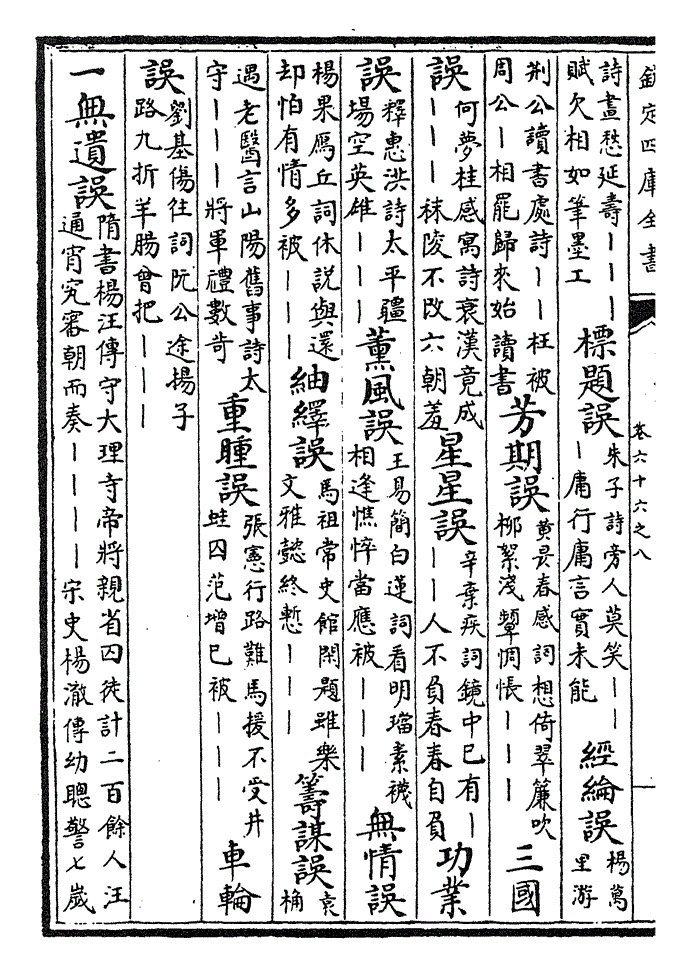 欽定四庫全書
卷六十六之八
詩畫愁延壽｜｜｜
賦欠相如筆墨工
標題誤
朱子詩旁人莫笑｜｜
｜庸行庸言實未能
經綸誤
楊萬
里游
荆公讀書處詩｜｜枉被
周公｜相罷歸來始讀書
芳期誤
黃春感詞想倚翠簾吹
柳絮淺顰惆悵｜｜｜
三國
誤
何夢桂感寓詩衰漢竟成
｜｜｜秣陵不改六朝羞
星星誤
辛棄疾詞鏡中已有｜
｜｜人不負春春自負
功業
誤
釋惠洪詩太平疆
場空英雄｜｜｜
薰風誤
王易簡白蓮詞看明璫素襪
相逢憔悴當應被｜｜｜
無情誤
楊果鴈丘詞休説與還
却怕有情多被｜｜｜
紬繹誤
馬祖常史館閑題雖樂
文雅懿終慙｜｜｜
籌謀誤
袁
桷
遇老醫言山陽舊事詩太
守｜｜｜將軍禮數苛
重瞳誤
張憲行路難馬援不受井
蛙囚范增已被｜｜｜
車輪
誤
劉基傷往詞阮公途揚子
路九折羊腸曾把｜｜｜
一無遺誤
隋書楊汪傳守大理寺帝將親省囚徒計二百餘人汪
通宵究審朝而奏｜｜｜｜宋史楊澈傳幼聰警七歲